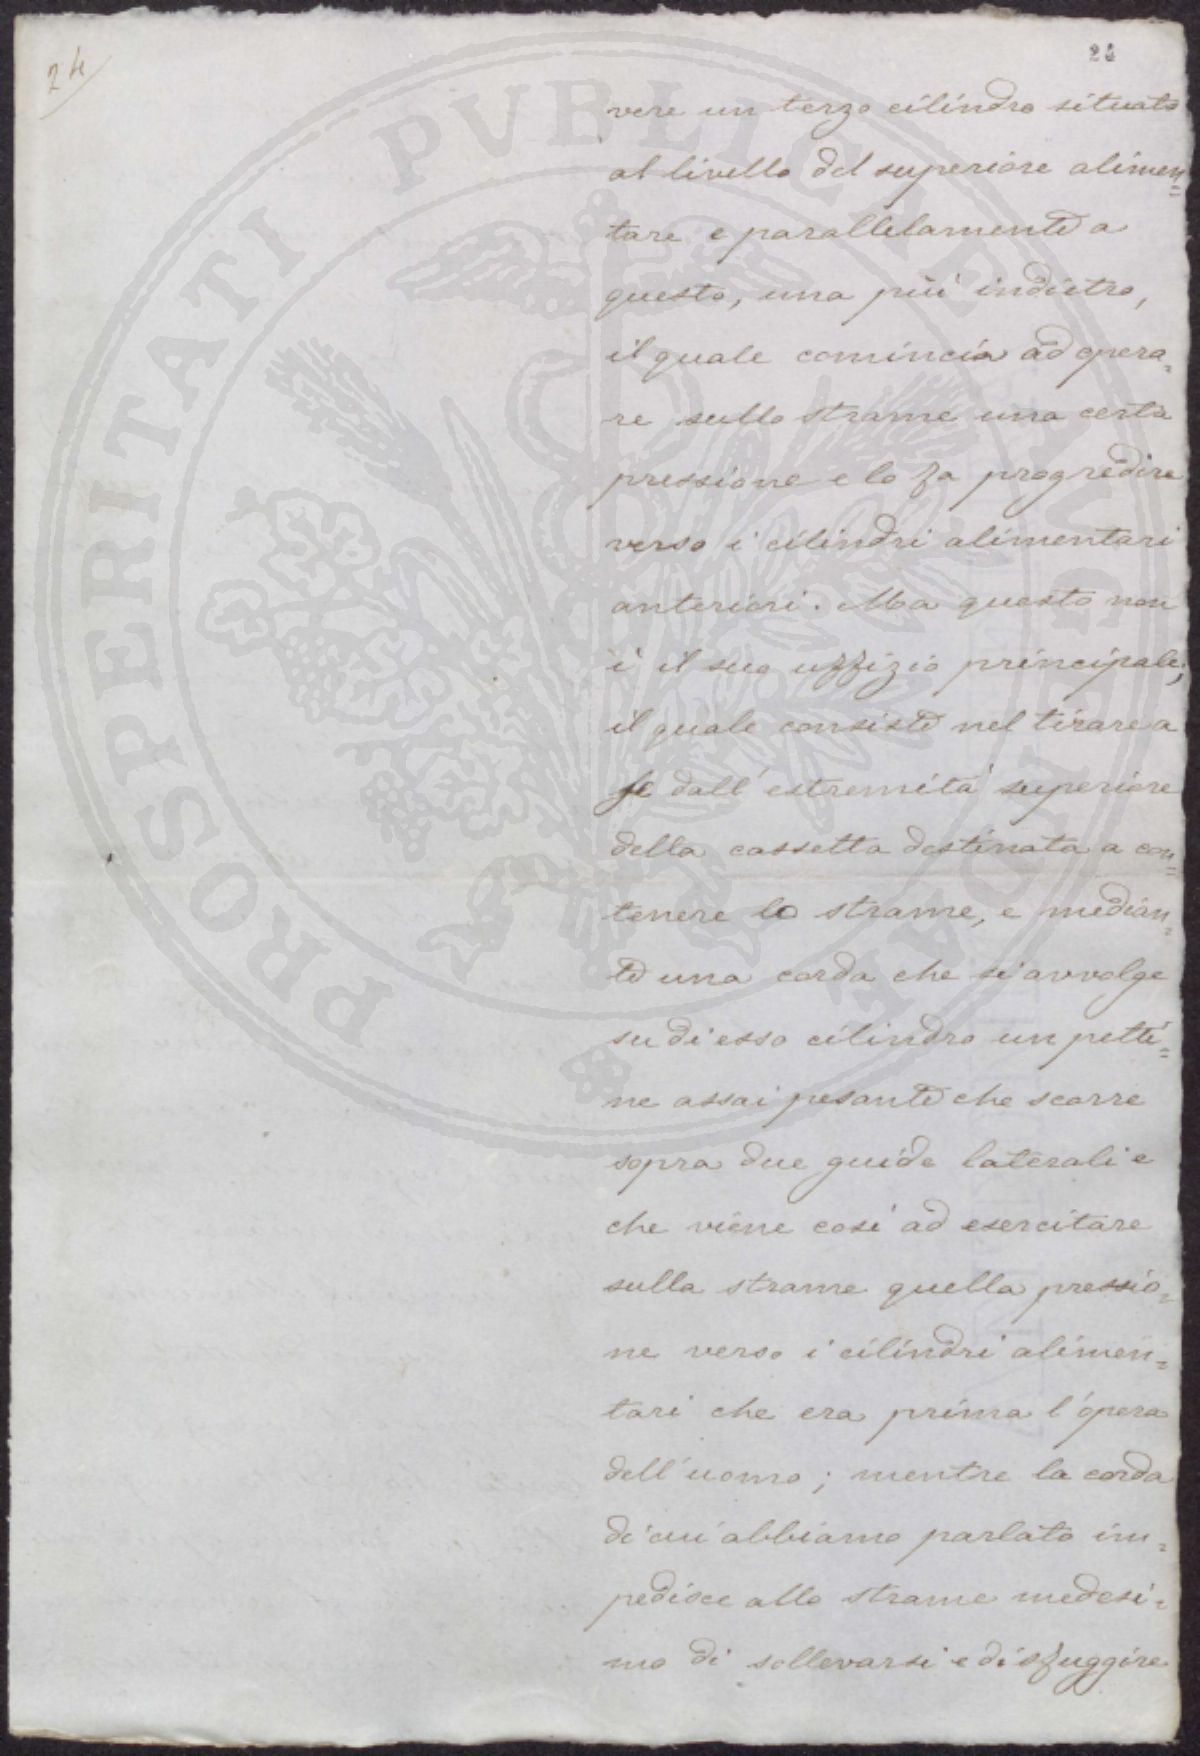 24
24
vere un terzo cilindro situato
al livello del superiore alimen=
tare e parallelamente a
questo, una più indietro,
il quale comincia ad opera=
re sullo strame una certa
pressione e lo fa progredire
verso i cilindri alimentari
anteriori. Ma questo non
è il suo uffizio principale;
il quale consiste nel tirare a
se dall'estremità superiore
della cassetta destinata a con=
tenere lo strame, e median=
te una corda che si avvolge
su di esso cilindro un petti=
ne assai pesante che scorre
sopra due guide laterali e
che viene così ad esercitare
sulla strame quella pressio=
ne verso i cilindri alimen=
tari che era prima l'opera
dell'uomo; mentre la corda
di cui abbiamo parlato im=
pedisce allo strame medesi=
mo di sollevarsi e di sfuggire
PROSPERITATI PVBLICAE AVGENDAE